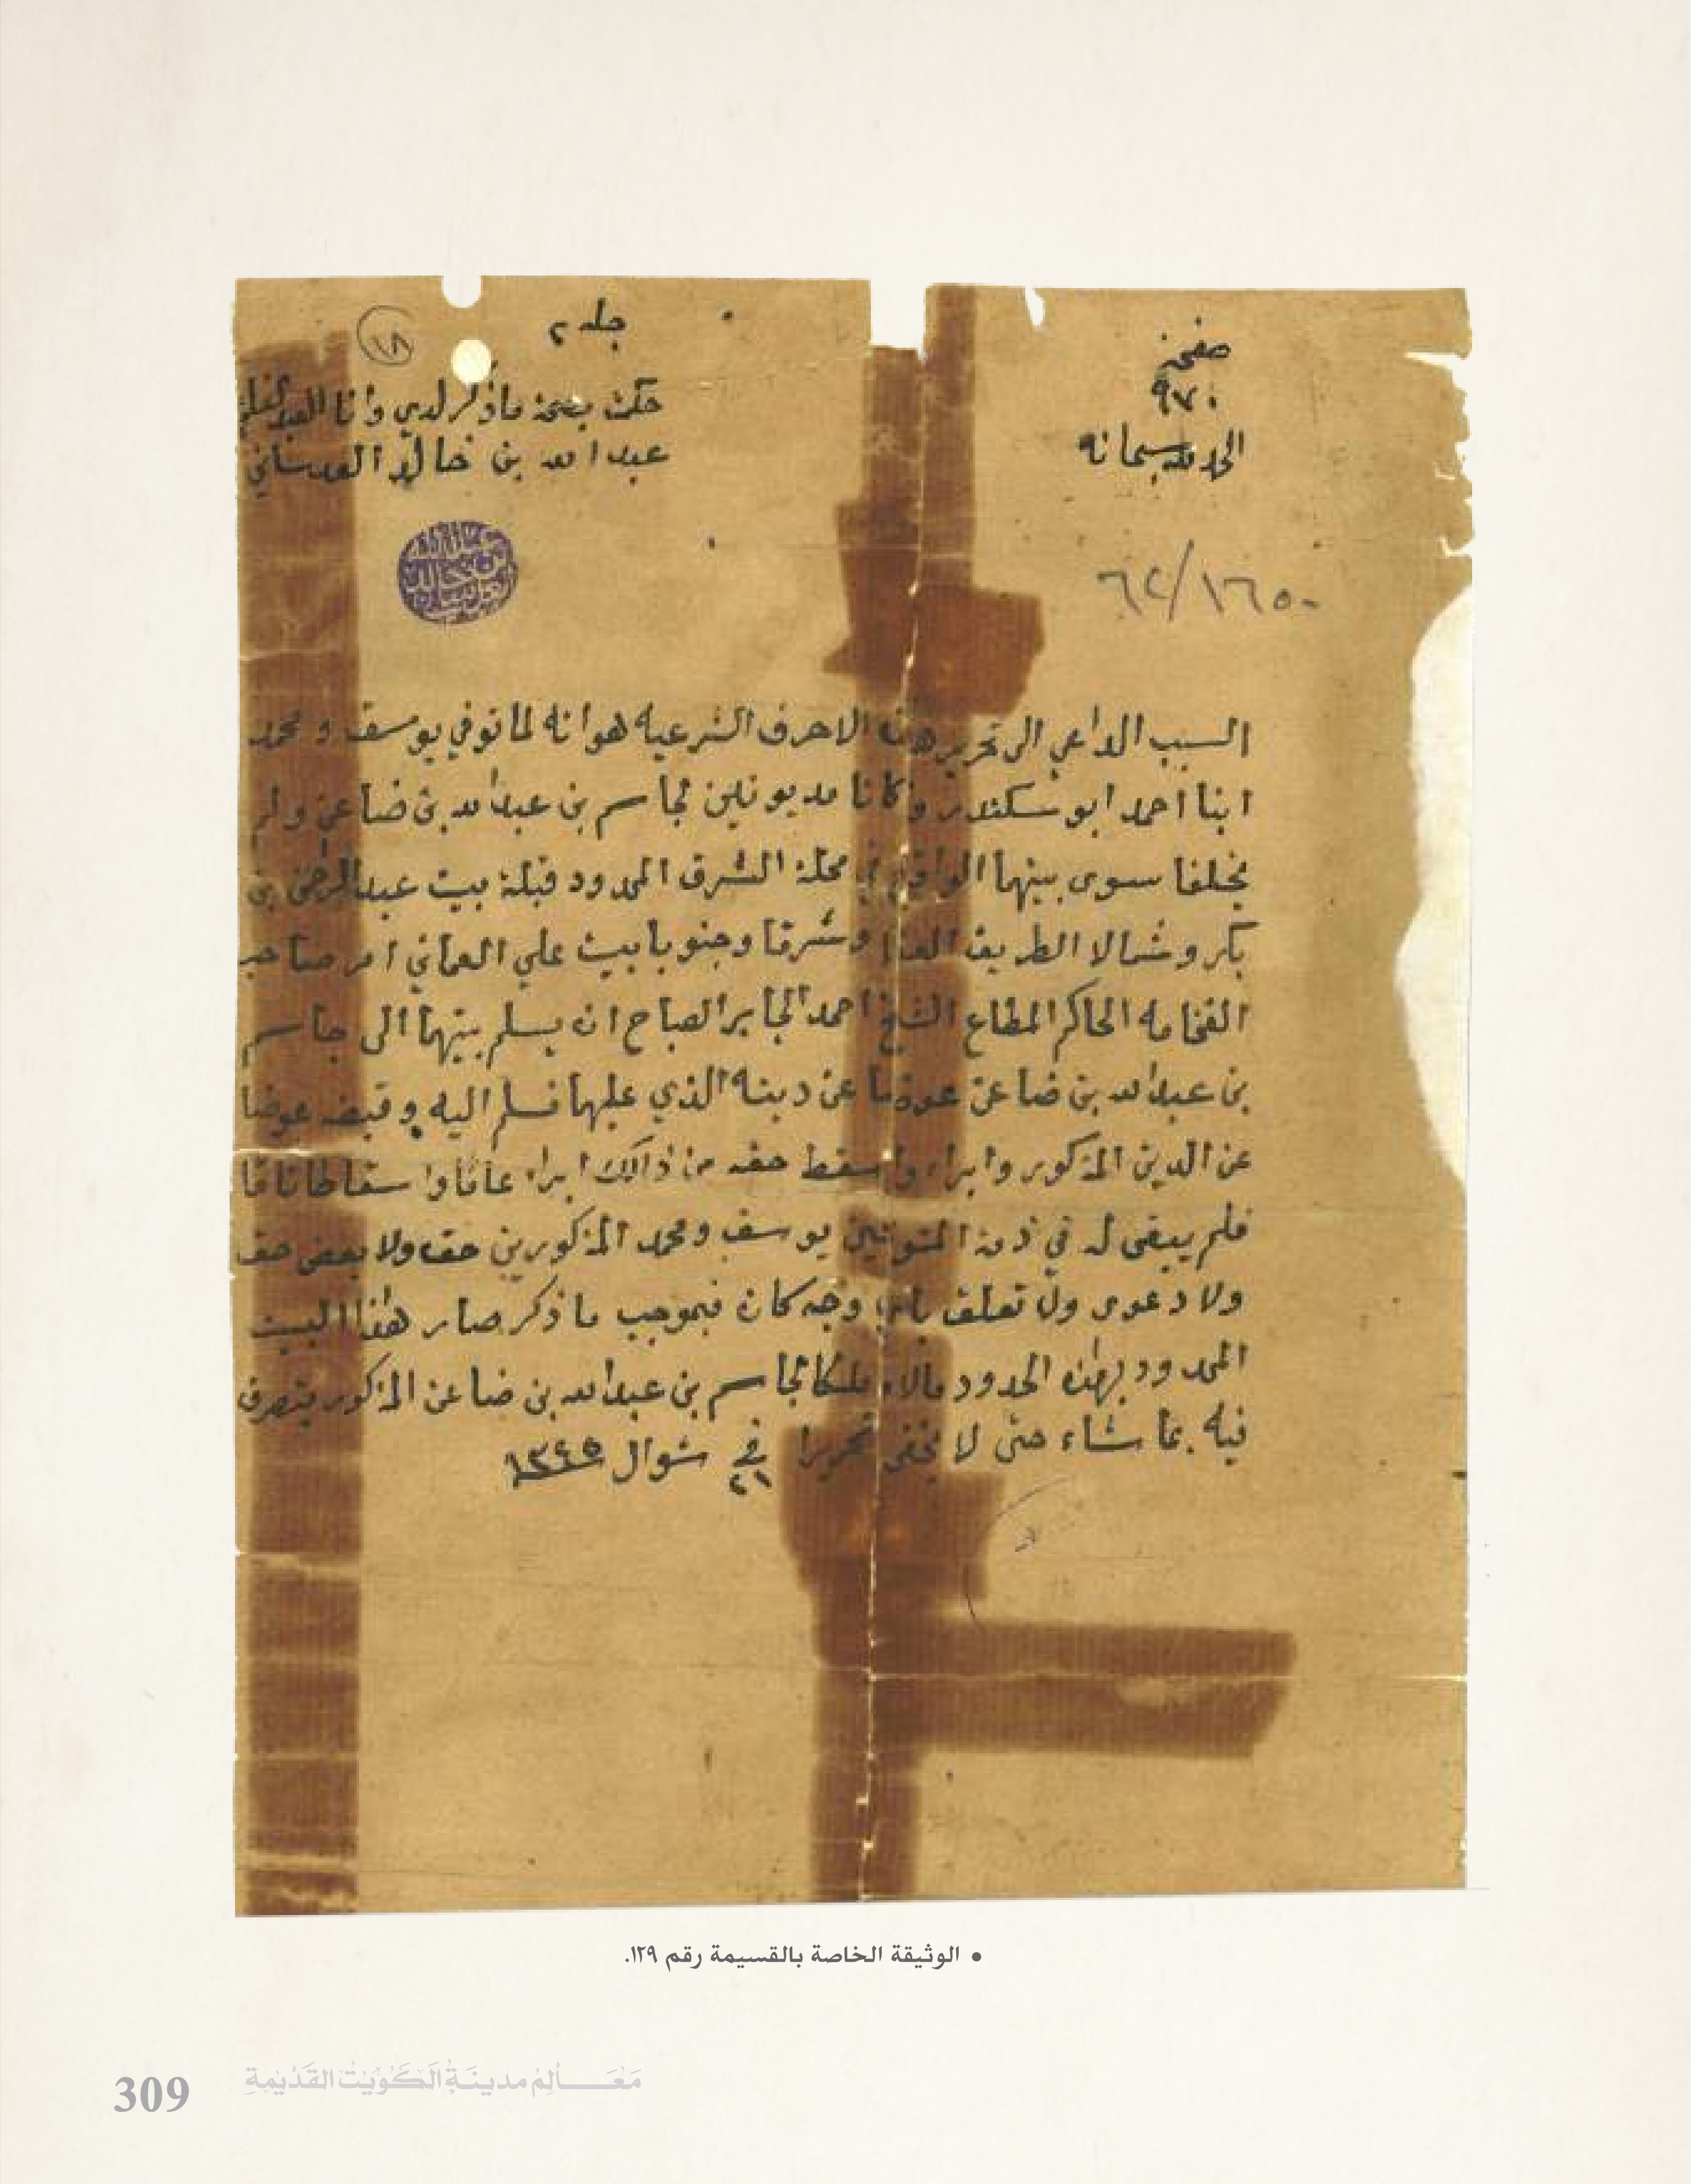 صفحة
٩٧٠
الحمد لله سبحانه
جلد ٢
١٨
حكمت بصحة ماذكر لدي وانا العبد
عبد الله بن خالد العدساني
٦٤/١٦٥٠
السبب الداعي الى تحرير هذه الاحرف الشرعيه هو انه لما توفي يوسف و محمد
ابنا احمد ابو سكندر وكانا مديونين لجاسم بن عبدالله بن ضاعن ولم
يخلفا سوى بيتهما الواقع في محلة الشرق المحدود قبلة بيت عبدالرحمن بن
بكر وشمالا الطريق العام وشرقا وجنوبا بيت علي العماني امر صاحب
الفخامه الحاكم المطاع الشيخ احمد الجابر الصباح ان يسلم بيتهما الى جاسم
بن عبدالله بن ضاعن عوضا عن دينه الذي عليهما فسلم اليه وقبضه عوضا
عن الدين المذكور وابراء واسقط حقه من ذالك ابراء عاما واسقاطا تاما
فلم يبقى له في ذمة المتوفين يوسف ومحمد المذكورين حق ولا بعض حق
ولا دعوى ولا تعلق باي وجه كان فبموجب ما ذكر صار هذا البيت
المحدود بهذه الحدود مالا وملكا لجاسم بن عبدالله بن ضاعن المذكور يتصرف
فيه بما شاء حتى لا يخفى تحريرا في ٢١ شوال ١٣٤٥
• الوثيقة الخاصة بالقسيمة رقم ١٢٩.
مَعَــالِم مدينَة الكُوَيْت القَدْيمةِ
309